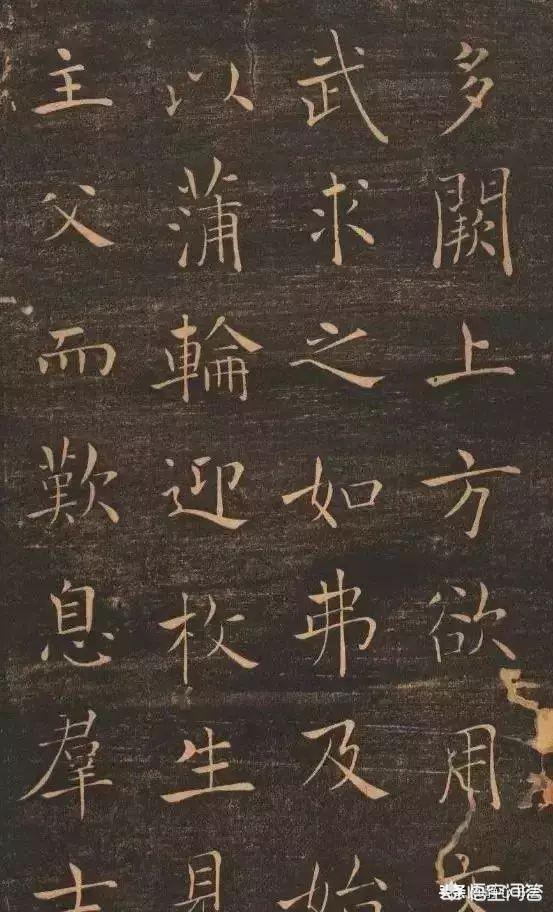 多闕上方欲用文
武求之如弗及始
以蒲輪迎枚生見
主父而歎息羣士
头条 悟空问答